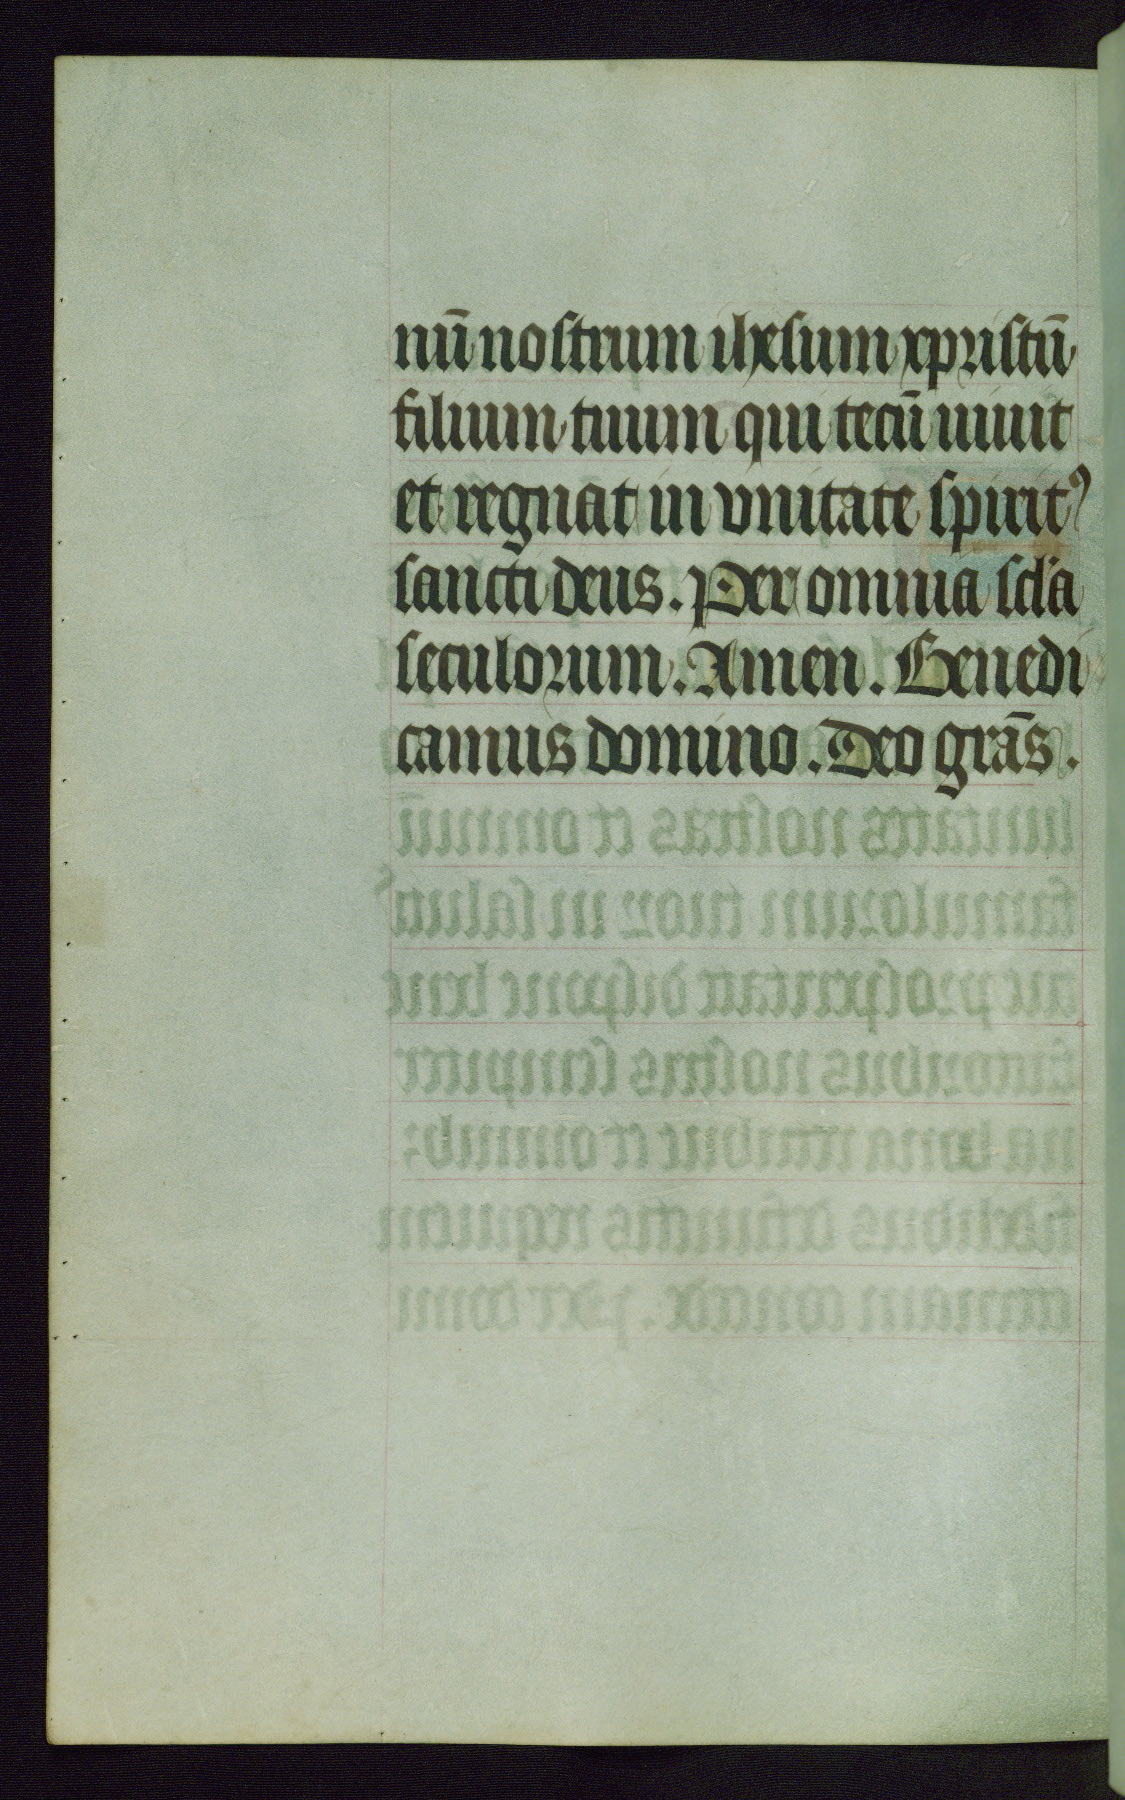 nū nostrum ihesum xpristū
filium tuum qui tecū uiuit
et regnat in vnitate spirit⁹
sancti deus. Per omnia scła
seculorum. Amen. Benedi
camus domino. Deo grās.